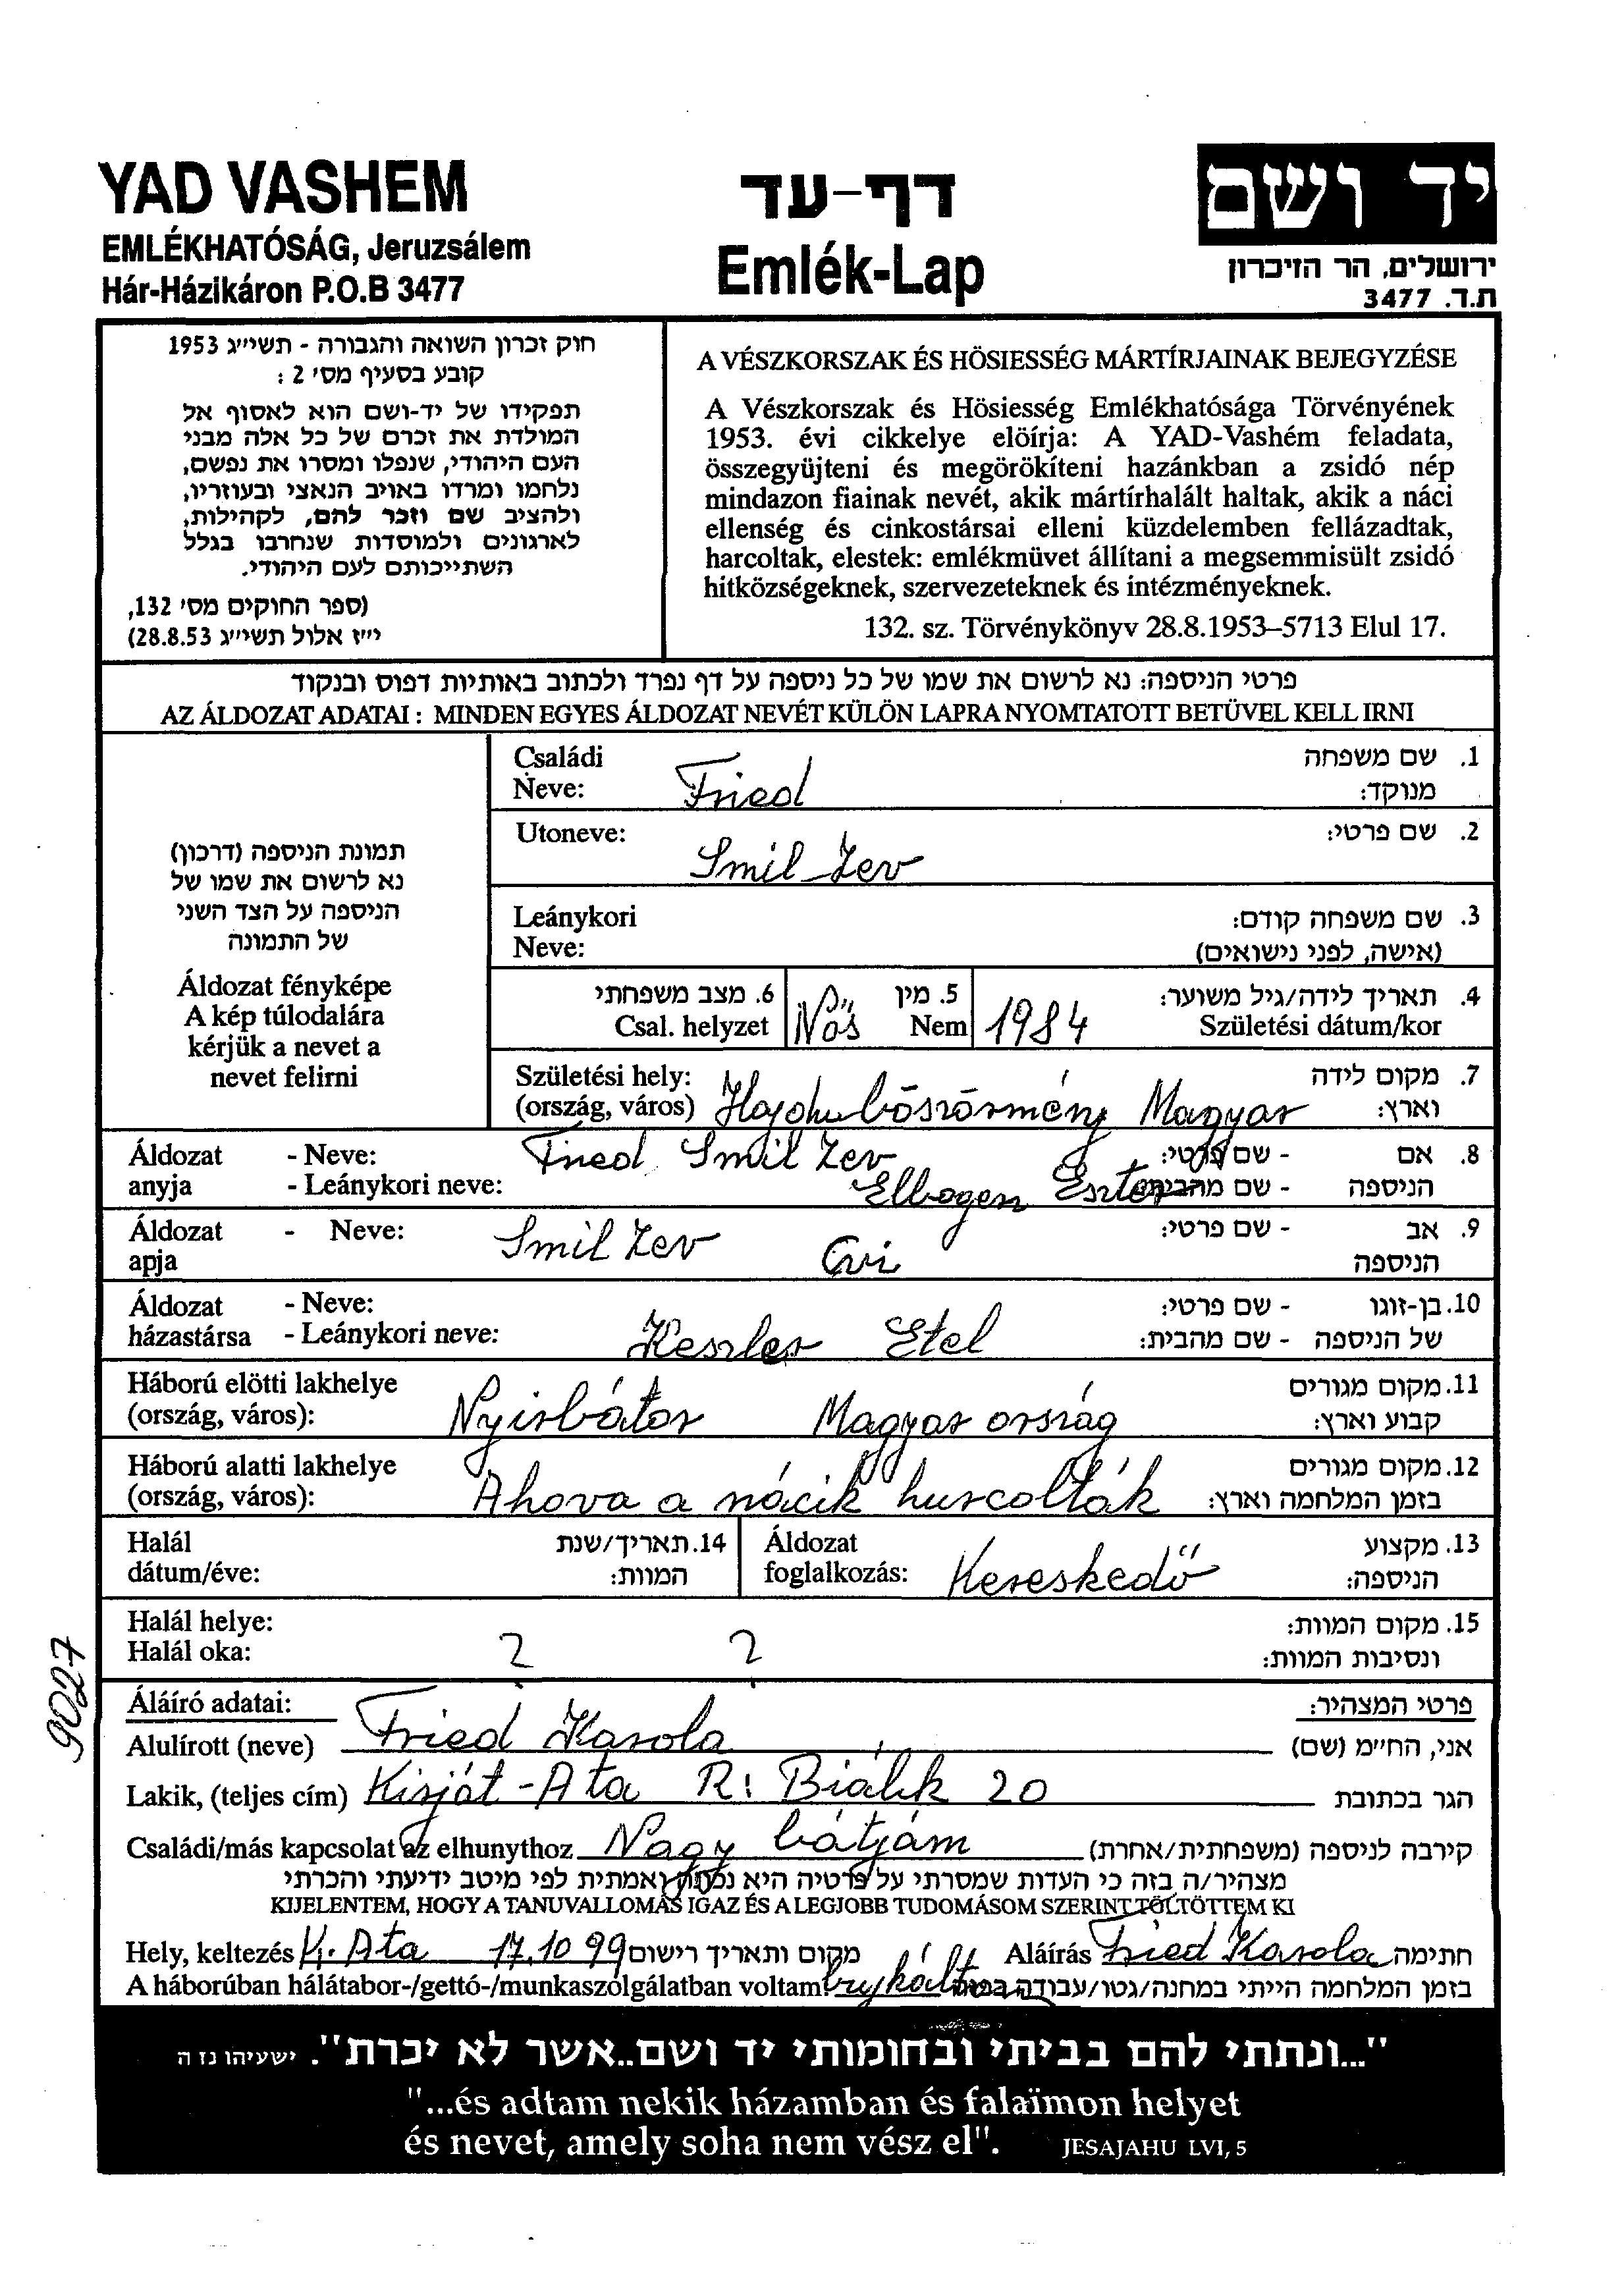 YAD VASHEM
EMLÉKHATÓSÁG, Jeruzsálem
Hár-Házikáron P.O.B 3477
דף-עד
Emlék-Lap
יד ושם
ירושלים, הר הזיכרון
ת.ד. 3477
חוק זכרון השואה והגבורה - תשי״ג 1953
קובע בסעיף מס׳ 2 :
תפקידו של יד-ושם הוא לאסוף אל
המולדת את זכרם של כל אלה מבני
העם היהודי, שנפלו ומסרו את נפשם,
נלחמו ומרדו באויב הנאצי ובעוזריו,
ולהציב שם וזכר להם, לקהילות,
לארגונים ולמוסדות שנחרבו בגלל
השתייכותם לעם היהודי.
(ספר החוקים מס׳ 132,
י״ז אלול תשי״ג 28.8.53)
A VÉSZKORSZAK ÉS HÖSIESSÉG MÁRTÍRJAINAK BEJEGYZÉSE
A Vészkorszak és Hösiesség Emlékhatósága Törvényének
1953. évi cikkelye elöírja: A YAD-Vashém feladata,
összegyüjteni és megörökíteni hazánkban a zsidó nép
mindazon fiainak nevét, akik mártírhalált haltak, akik a náci
ellenség és cinkostársai elleni küzdelemben fellázadtak,
harcoltak, elestek: emlékmüvet állítani a megsemmisült zsidó
hitközségeknek, szervezeteknek és intézményeknek.
132. sz. Törvénykönyv 28.8.1953–5713 Elul 17.
פרטי הניספה: נא לרשום את שמו של כל ניספה על דף נפרד ולכתוב באותיות דפוס ובנקוד
AZ ÁLDOZAT ADATAI : MINDEN EGYES ÁLDOZAT NEVÉT KÜLÖN LAPRA NYOMTATOTT BETÜVEL KELL IRNI
תמונת הניספה (דרכון)
נא לרשום את שמו של
הניספה על הצד השני
של התמונה
Áldozat fényképe
A kép túlodalára
kérjük a nevet a
nevet felirni
Családi Neve: Fried 1. שם משפחה מנוקד:
Utoneve: Smil Zev 2. שם פרטי:
Leánykori Neve: 3. שם משפחה קודם: (אישה, לפני נישואים)
6. מצב משפחתי Csal. helyzet Nős 5. מין Nem 1984 4. תאריך לידה/גיל משוער: Születési dátum/kor
Születési hely: (ország, város) Hajdu böszörmény Magyar 7. מקום לידה וארץ:
Áldozat - Neve: Fried Smil Zev 8. אם - שם פרטי:
anyja - Leánykori neve: Ellbogen Eszter הניספה - שם מהבית:
Áldozat - Neve: Smil Zev Cvi 9. אב - שם פרטי:
apja הניספה
Áldozat - Neve: 10. בן-זוגו - שם פרטי:
házastársa - Leánykori neve: Keszler Etel של הניספה - שם מהבית:
Háború elötti lakhelye (ország, város): Nyirbátor Magyar ország 11. מקום מגורים קבוע וארץ:
Háború alatti lakhelye (ország, város): Ahova a nácik hurcolták 12. מקום מגורים בזמן המלחמה וארץ:
Halál dátum/éve: 14. תאריך/שנת המוות: Áldozat foglalkozás: Kereskedő 13. מקצוע הניספה:
Halál helye: 15. מקום המוות:
Halál oka: ? ? ונסיבות המוות:
9027
Áláíró adatai: פרטי המצהיר:
Alulírott (neve) Fried Karola אני, הח״מ (שם)
Lakik, (teljes cím) Kirját-Ata R: Biálik 20 הגר בכתובת
Családi/más kapcsolat az elhunythoz Nagy bátjám קירבה לניספה (משפחתית/אחרת)
מצהיר/ה בזה כי העדות שמסרתי על פרטיה היא נכונה ואמתית לפי מיטב ידיעתי והכרתי
KIJELENTEM, HOGY A TANUVALLOMÁS IGAZ ÉS A LEGJOBB TUDOMÁSOM SZERINT TÖLTÖTTEM KI
Hely, keltezés K. Ata 17.10 99 מקום ותאריך רישום Aláírás Fried Karola חתימה
A háborúban hálátabor-/gettó-/munkaszolgálatban voltam: בזמן המלחמה הייתי במחנה/גטו/עבודה
"...ונתתי להם בביתי ובחומותי יד ושם..אשר לא יכרת". ישעיהו נז ה
"...és adtam nekik házamban és falaïmon helyet
és nevet, amely soha nem vész el". JESAJAHU LVI, 5